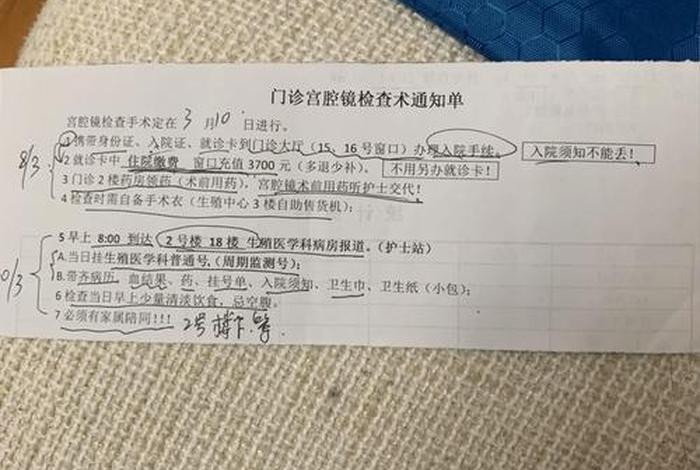 门诊宫腔镜检查术通知单
宫腔镜检查手术定在 3 月 10 日进行。
8/3
1 携带身份证、入院证、就诊卡到门诊大厅（15、16 号窗口）办理入院手续。 入院须知不能丢！
2 就诊卡中 住院缴费 窗口充值 3700 元（多退少补）。 不用另办就诊卡！
3 门诊 2 楼药房领药（术前用药），宫腔镜术前用药听护士交代！
4 检查时需自备手术衣（生殖中心 3 楼自助售货机）；
5 早上 8:00 到达 2 号楼 18 楼 生殖医学科病房报道。（护士站）
A.当日挂生殖医学科普通号（周期监测号）；
0/3
B.带齐病历、血结果、药、挂号单、入院须知、卫生巾、卫生纸（小包）；
6 检查当日早上少量清淡饮食，忌空腹。
7 必须有家属陪同!!! 2号楼